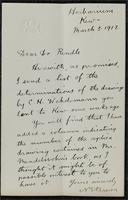 Herbarium
Kew
March 5. 1912
Dear Dr. Rendle
Herewith, as promised,
I send a list of the
determinations of the drawings
by C. H. Wehdemann you
sent to Kew
You will find that I have
added a column indicating
the number of the drawings
existing volumes in Mr.
book as I
thought it ought to be of
possible interest to you to
have it.
Yours sincerely
N. E. Brown